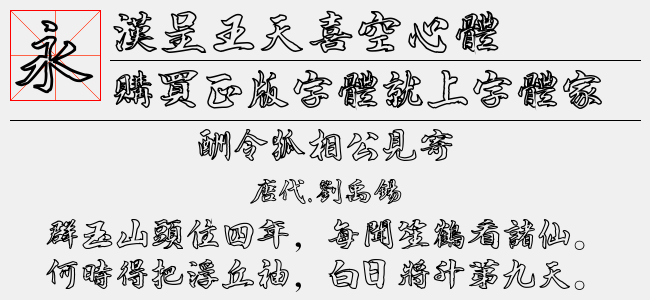 永
漢呈王天喜空心體
購買正版字體就上字體家
酬令狐相公見寄
唐代.劉禹錫
群玉山頭住四年，每聞笙鶴看諸仙。
何時得把浮丘袖，白日將升第九天。